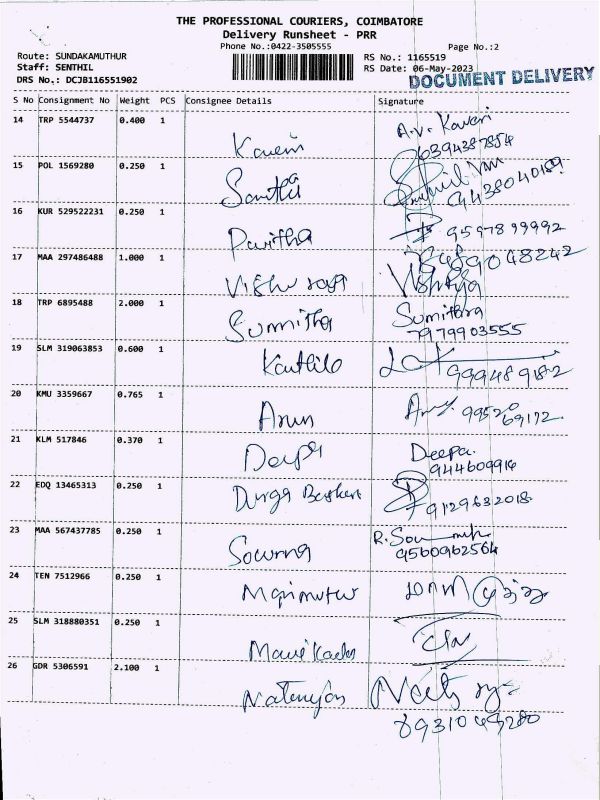 THE PROFESSIONAL COURIERS, COIMBATORE
Delivery Runsheet - PRR
Phone No.:0422-3505555
Page No.:2
Route: SUNDAKAMUTHUR
RS No.: 1165519
Staff: SENTHIL
RS Date: 06-May-2023
DRS No.: DCJB116551902
DOCUMENT DELIVERY
S No Consignment No Weight PCS Consignee Details Signature
14 TRP 5544737 0.400 1 Kaveri A.V. Kaveri
6394387854
15 POL 1569280 0.250 1
9438040189
16 KUR 529522231 0.250 1 Pavitha 9597899992
17 MAA 297486488 1.000 1
18 TRP 6895488 2.000 1 Sumitha Sumithra
7979903555
19 SLM 319063853 0.600 1 999489182
20 KMU 3359667 0.765 1 Arun 99520
69172
21 KLM 517846 0.370 1 Deepa Deepa.
944609916
22 EDQ 13465313 0.250 1 Durga 9129632018
23 MAA 567437785 0.250 1
9560962564
24 TEN 7512966 0.250 1 Marimutu
25 SLM 318880351 0.250 1
26 GDR 5306591 2.100 1 Natarajan